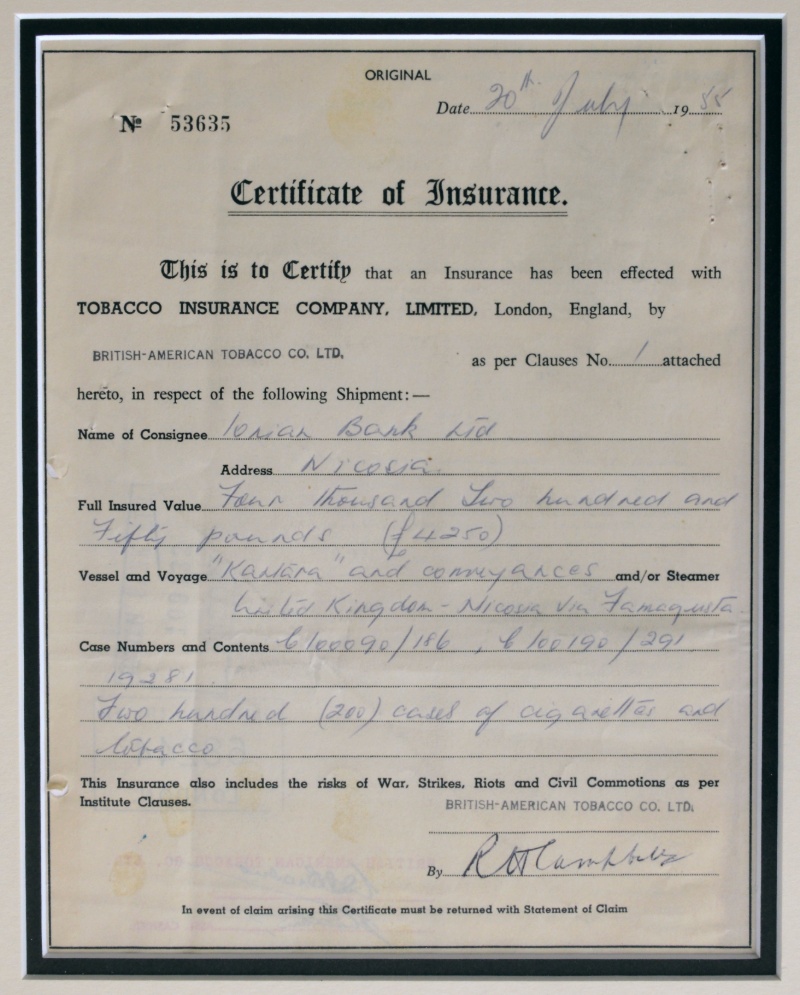 ORIGINAL
Date 20th July 1955
No 53635
Certificate of Insurance.
This is to Certify that an Insurance has been effected with
TOBACCO INSURANCE COMPANY, LIMITED, London, England, by
BRITISH-AMERICAN TOBACCO CO. LTD. as per Clauses No. 1 attached
hereto, in respect of the following Shipment:—
Name of Consignee Ionian Bank Ltd
Address Nicosia
Full Insured Value Four thousand Two hundred and
Fifty pounds (£4250)
Vessel and Voyage "Kantara" and conveyances and/or Steamer
United Kingdom - Nicosia via Famagusta.
Case Numbers and Contents 6/00090/186, 6/00190/291
19281.
Two hundred (200) cases of cigarettes and
tobacco
This Insurance also includes the risks of War, Strikes, Riots and Civil Commotions as per
Institute Clauses.
BRITISH-AMERICAN TOBACCO CO. LTD.
By
In event of claim arising this Certificate must be returned with Statement of Claim